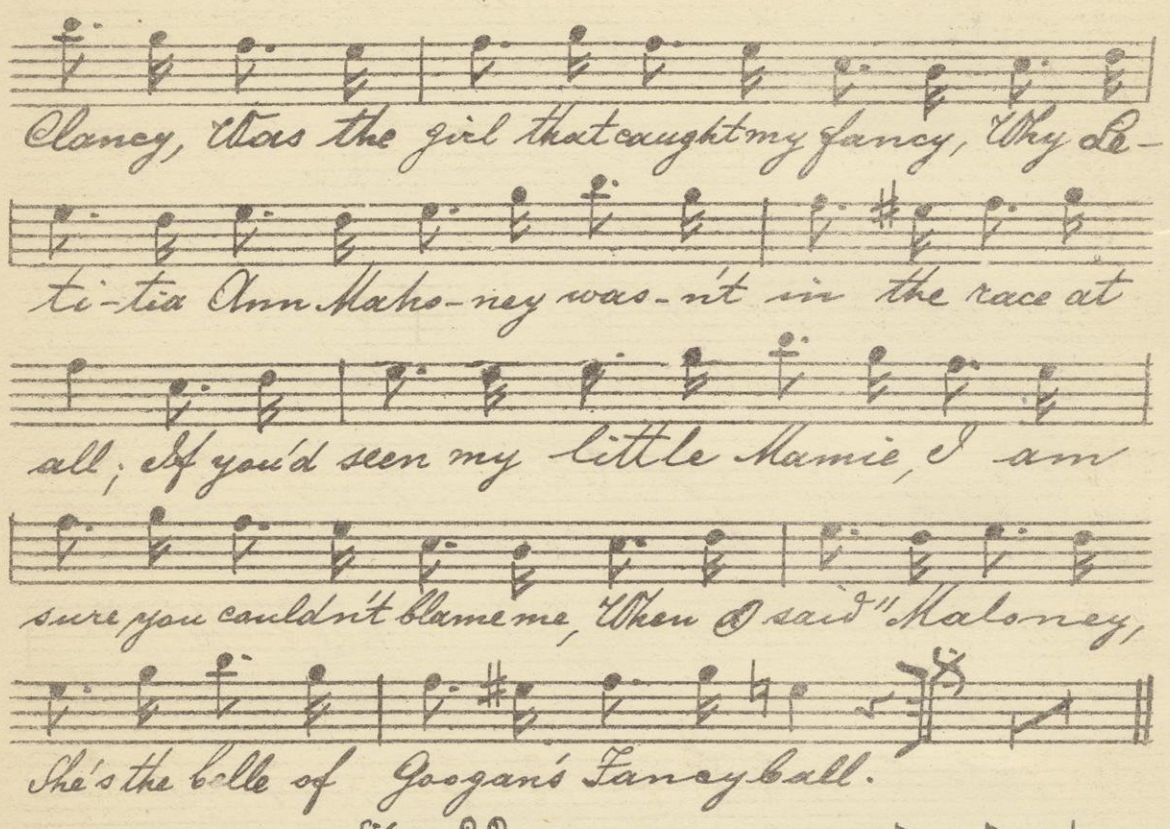 Clancy, Was the girl that caught my fancy, Why Le-
ti-tia Ann Maho-ney was-n't in the race at
all; If you'd seen my little Mamie, I am
sure you couldn't blame me, When I said "Maloney,
She's the belle of Googan's Fancy ball.